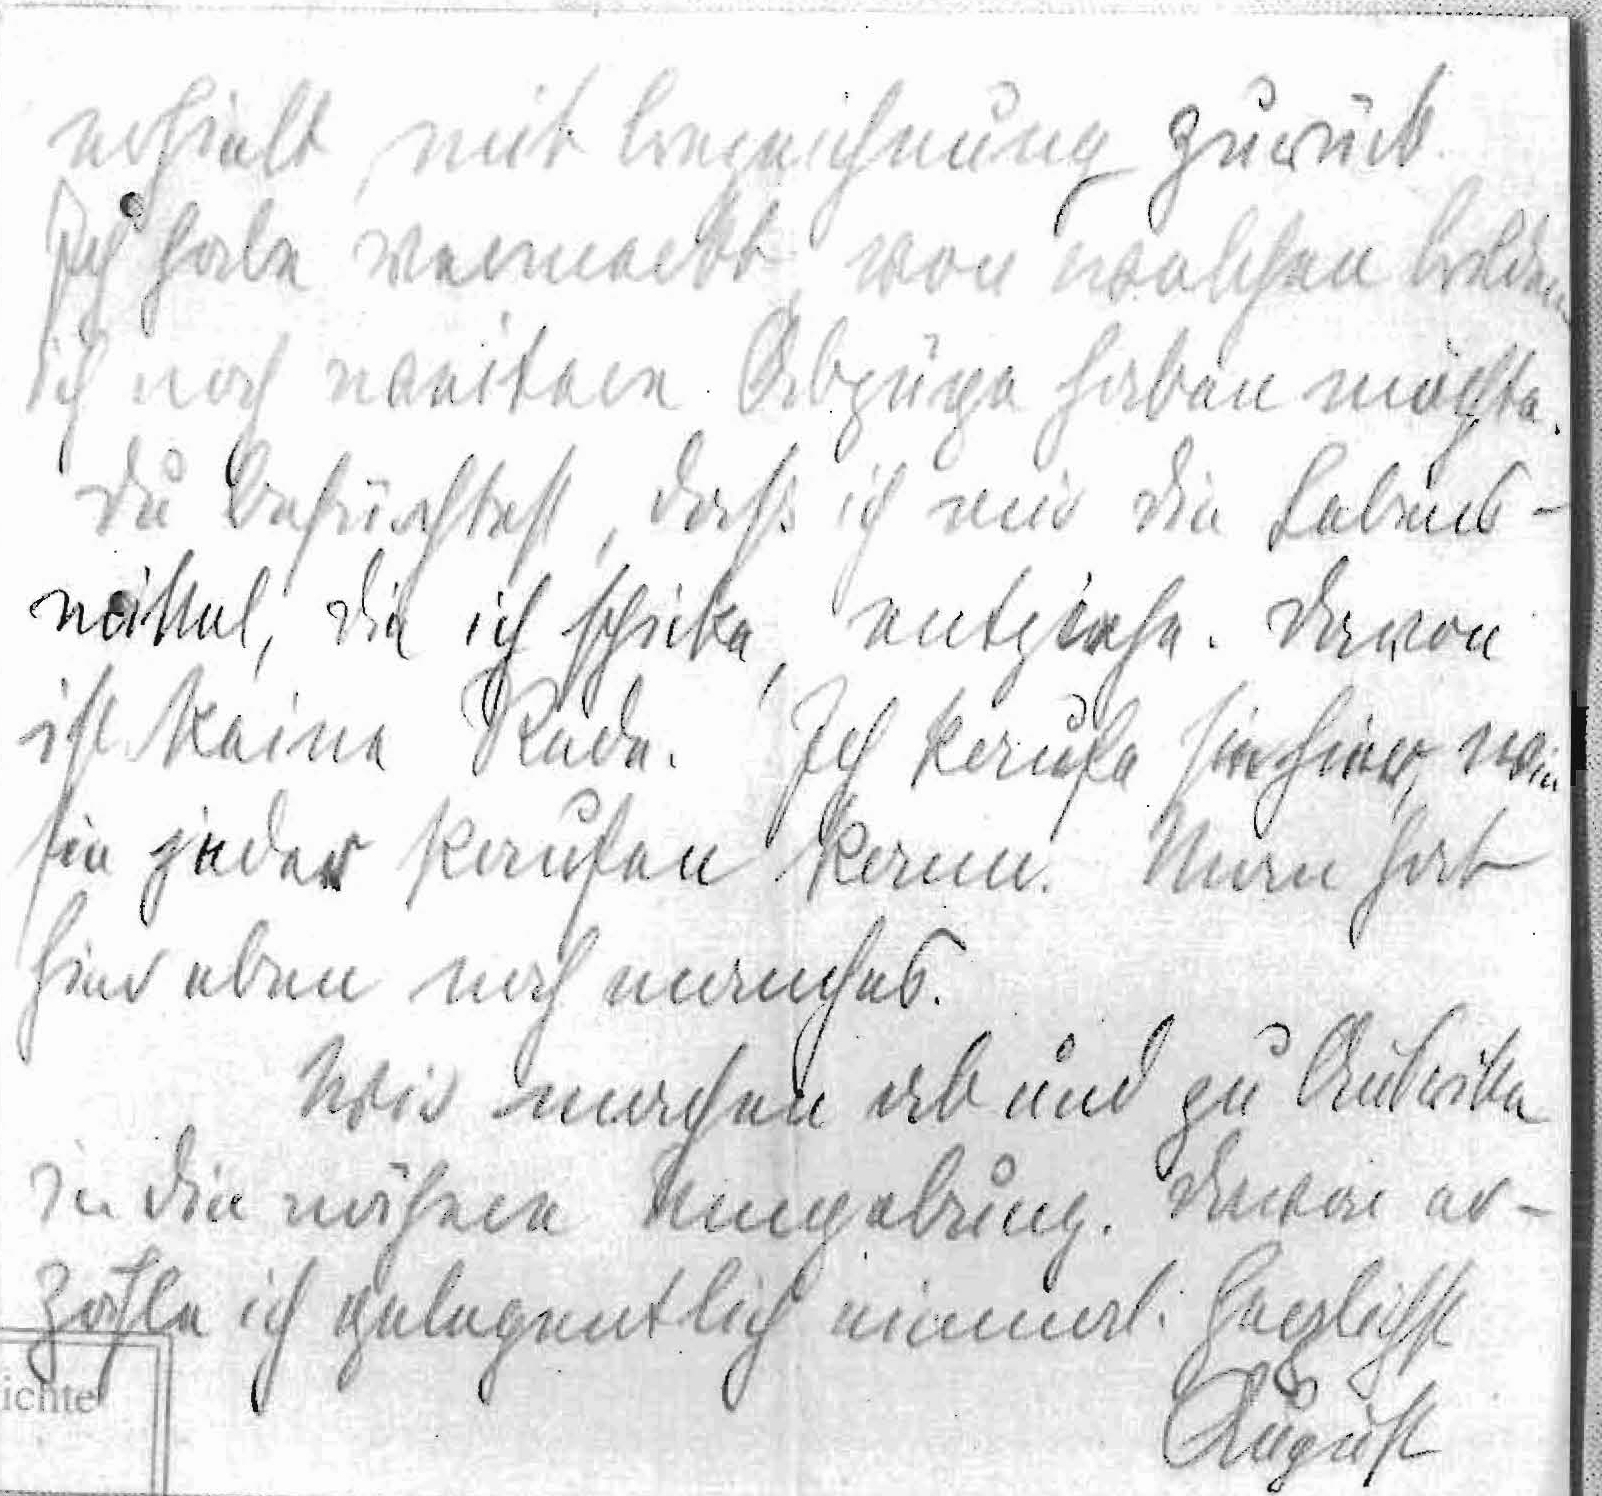 erhielt mit Bezeichnung zurück.
Ich habe vermerkt, von welchen Bildern
ich noch weitere Abzüge haben möchte.
Du befürchtest, daß ich mir die Lebens-
mittel, die ich schicke, entziehe. Davon
ist keine Rede. Ich kaufe sie hier, wie
sie jeder kaufen kann. Man hat
hier eben noch manches.
Wir machen ab und zu Ausritte
in die nähere Umgebung. Davon er-
zähle ich gelegentlich einmal. Herzlichst
August
ichte